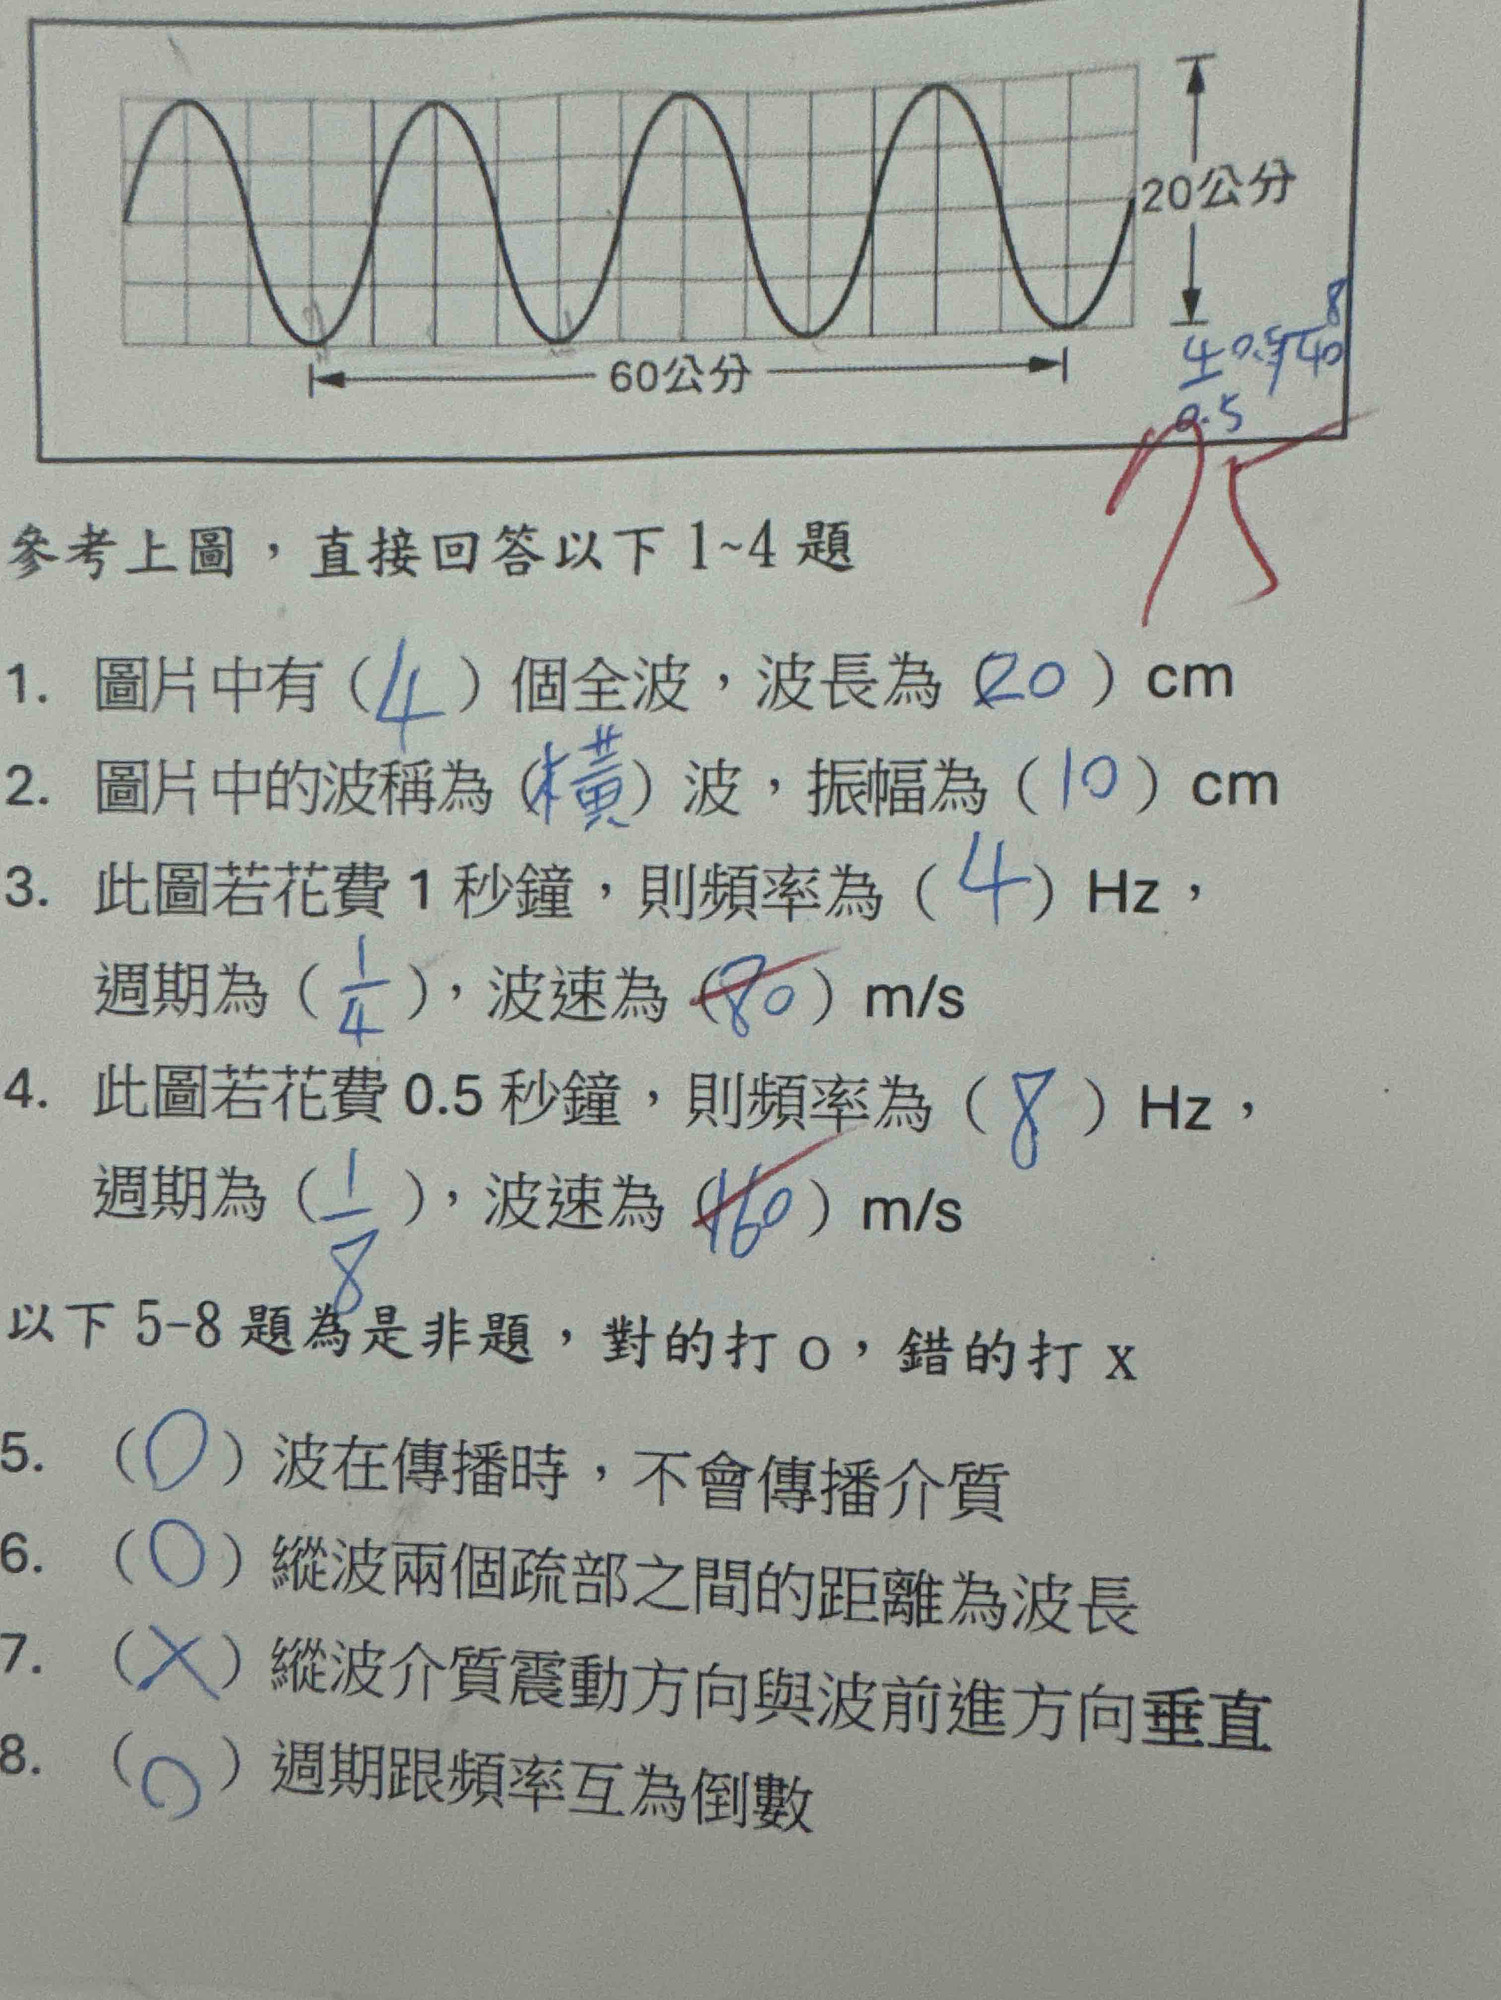 20公分
60公分
8
4 0.5√40
0.5
75
參考上圖，直接回答以下 1~4 題
1. 圖片中有（4）個全波，波長為（20）cm
2. 圖片中的波稱為（橫）波，振幅為（10）cm
3. 此圖若花費 1 秒鐘，則頻率為（4）Hz，
週期為（1/4），波速為（80）m/s
4. 此圖若花費 0.5 秒鐘，則頻率為（8）Hz，
週期為（1/8），波速為（160）m/s
以下 5-8 題為是非題，對的打 o，錯的打 x
5. （O）波在傳播時，不會傳播介質
6. （O）縱波兩個疏部之間的距離為波長
7. （X）縱波介質震動方向與波前進方向垂直
8. （O）週期跟頻率互為倒數